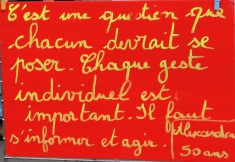 C'est une question que
chacun devrait se
poser. Chaque geste
individuel est
important. Il faut
s'informer et agir.
Alexandra
50 ans